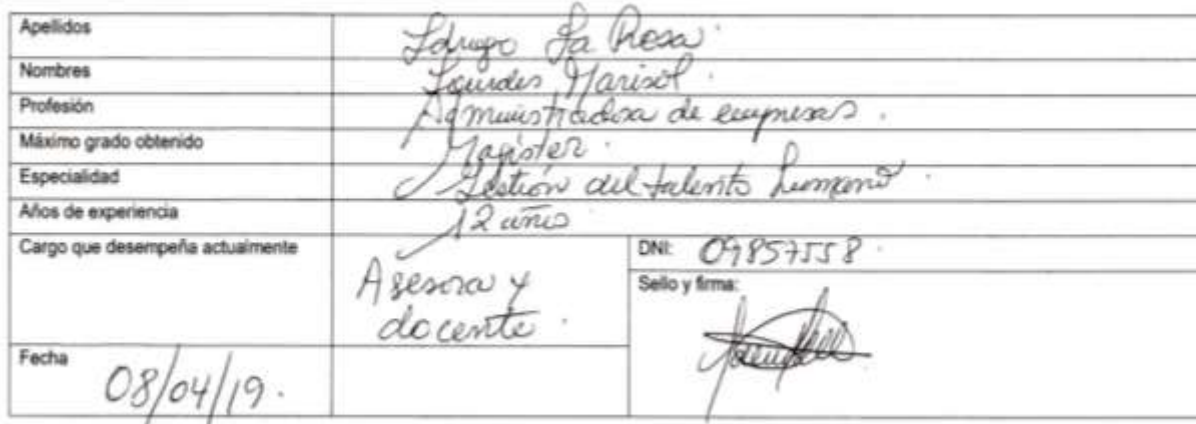 Apellidos La Rosa
Nombres Lourdes Marisol
Profesión Administradora de empresas
Máximo grado obtenido Magister
Especialidad Gestión del talento humano
Años de experiencia 12 años
Cargo que desempeña actualmente Asesora y
docente
DNI: 09857558
Sello y firma:
Fecha 08/04/19